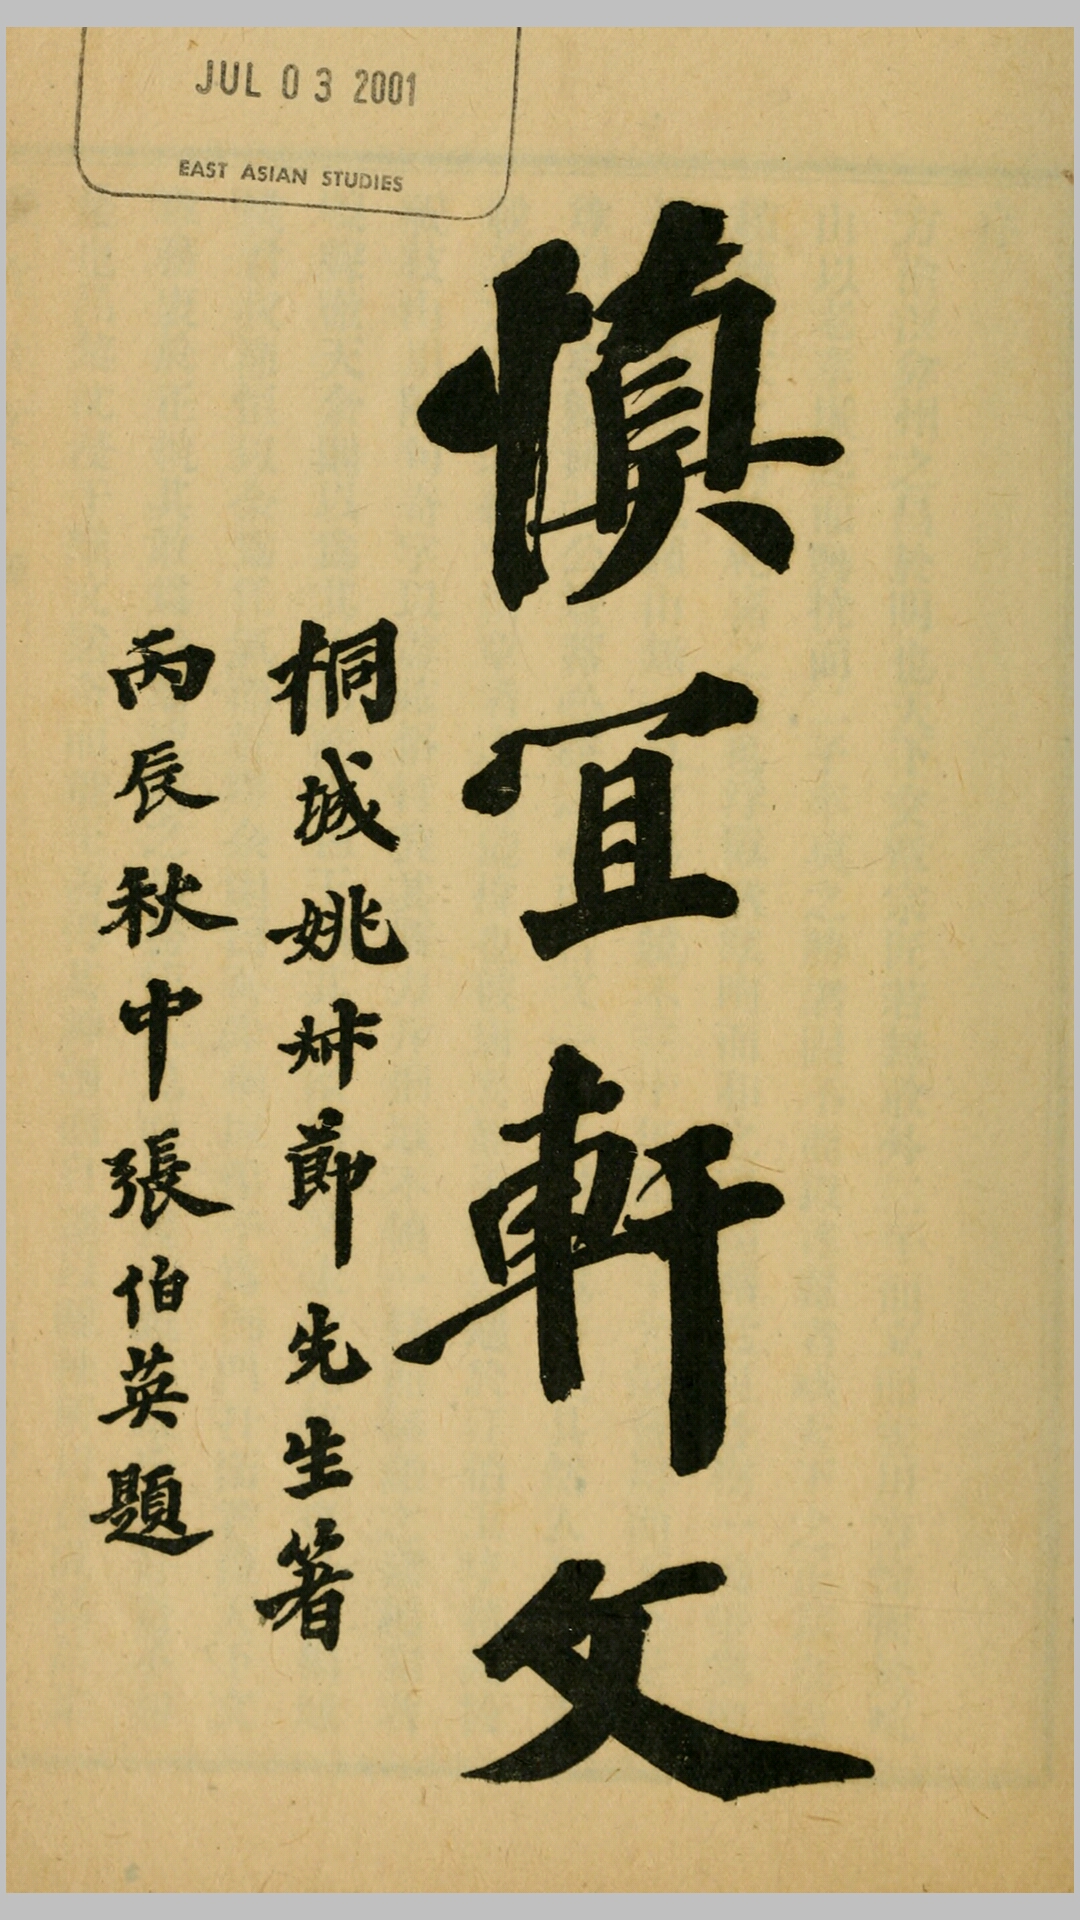 JUL 03 2001
EAST ASIAN STUDIES
慎宜軒文
桐城姚叔節先生著
丙辰秋中張伯英題